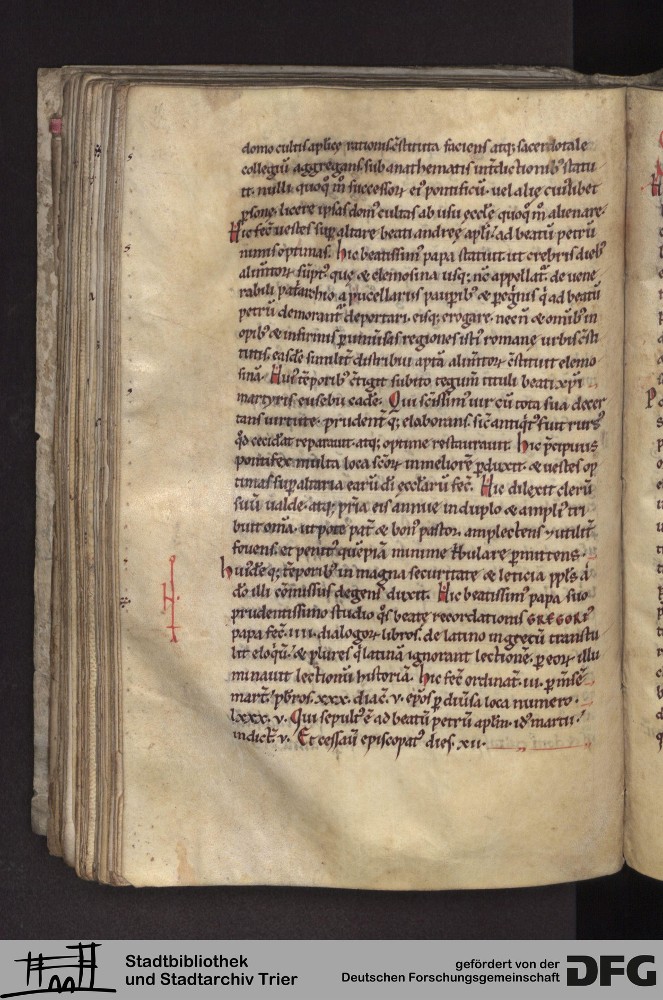 domo cultis aplicę rationis c̄stituta faciens atq; sacerdotale
collegiū aggregans. sub anathematis int̄dictionib; statu
it. nulli quoq̄ m̄ successorꝝ ei᾽ pontificū. uel alie cuilibet
ꝑsone. licere ipsas dom᾽ cultas ab usu ęccl̄e quoq̄ m̄ alienare.
Hic fec̄ uestes sup altare beati andreę apl̄i ad beatū petrū
nimis optimas. hic beatissim᾽ papa statuit ut crebris dieb;
alim̄torꝝ sūpt᾽ que & elemosina usq; nc̄ appellat᾽. de uene
rabili pat᾽archio. a pucellariis paupib; & ꝑegⁱnis q̄ ad beatū
petrū demorant᾽ deportari. eisq; erogare. necn̄ & omīb; in
opib; & infirmis ꝑ uniūsas regiones isti᾽ romanę urbis c̄sti
tutis. easdē similit̄ distribui aptā alim̄torꝝ c̄stituit elemo
sinā. Hui᾽ tēporib; c̄tigit subito tegum̄ tituli beati xp̄i
martyris eusebii cadē. Qui sc̄issim᾽ uir cū tota sua decer
tans uirtute. prudent̄ q; elaborans. sic̄ antiqⁱt᾽ fuit rurs᾽
qd̄ cecidat reparauit. atq; optime restaurauit. hic p̄cipuus
pontifex multa loca sc̄orꝝ in meliorē ꝑduxit. & uestes op
timas sup altaria earū dī ęccl̄arū fec̄. Hic dilexit clerū
suū ualde. atq; pr̄ia eis annue in duplo & ampli᾽ tri
buit om̄a. ut pote pat̄ & bon᾽ pastor. amplectens & utilit̄
fouens. et penit᾽ quēpiā minime tⁱbulare ꝑmittens.
huidē q; tēporib; in magna securitate & leticia ppl̄s a
do illi cōmissus degens duxit. Hic beatissim᾽ papa suo
prudentissimo studio qōs beatę recordationis GREGORI᾽
papa fec̄ IIII. dialogorꝝ libros. de latino in grecū transtu
lit eloqū. & plures q̄ latinā ignorant lectionē. ꝑ eorꝝ illu
minauit lectionū historiā. hic fec̄ ordinat̄. III. ꝑ m̄sē
mart̄. pb̄ros. xxx. diac̄. v. ep̄os ꝑ diūsa loca numero.
lxxx. v. Qui sepult᾽ ē ad beatū petrū aplm̄. id᾽ martii.
indict̄. v. Et cessaū episcopat᾽ dies. xii.
Stadtbibliothek
und Stadtarchiv Trier
gefördert von der
Deutschen Forschungsgemeinschaft
DFG